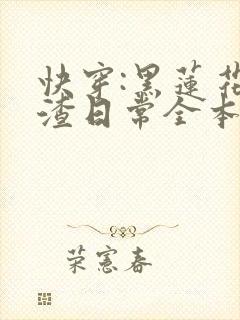 快穿:黑蓮花
渣日常全本
荣憲春